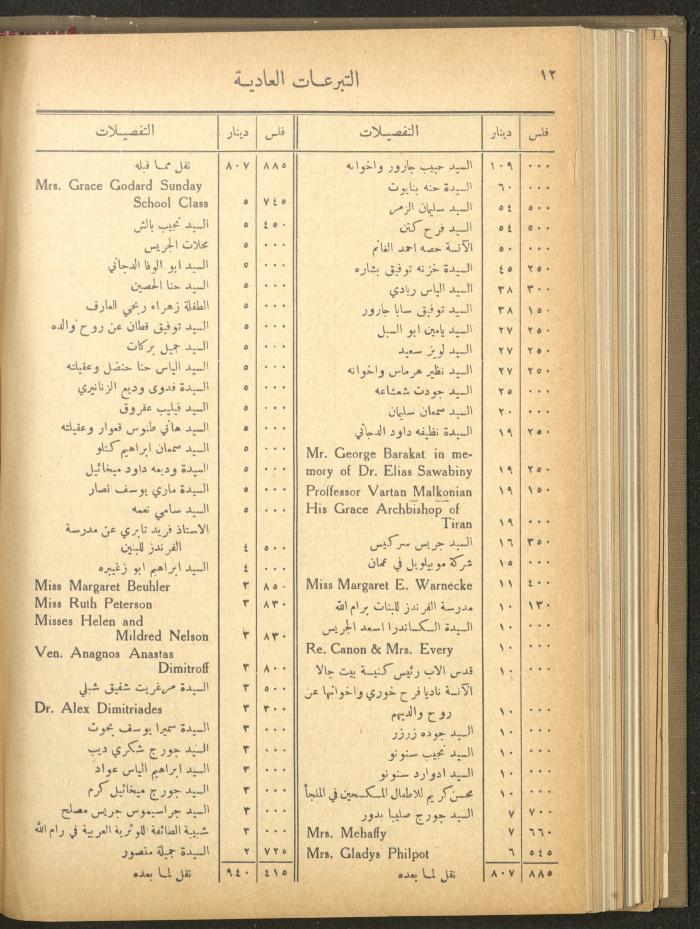 ١٢
التبرعات العادية
فلس دينار التفصيلات
٠٠٠ ١٠٩ السيد حبيب جارور واخوانه
٠٠٠ ٦٠ السيدة حنه بنايوت
٥٠٠ ٥٤ السيد سليمان الزمر
٥٠٠ ٥٤ السيد فرح كتن
٠٠٠ ٥٠ الآنسة حصه احمد الغانم
٢٥٠ ٤٥ السيدة خزنه توفيق بشاره
٣٠٠ ٣٨ السيد الياس ريادي
١٥٠ ٣٨ السيد توفيق سابا جارور
٢٥٠ ٢٧ السيد يامين ابو السبل
٢٥٠ ٢٧ السيد لويز سعيد
٢٥٠ ٢٧ السيد نظير هرماس واخوانه
٠٠٠ ٢٥ السيد جودت شعشاعه
٠٠٠ ٢٠ السيد سمعان سليمان
٢٥٠ ١٩ السيدة نظيفه داود الدجاني
Mr. George Barakat in me-
٢٥٠ ١٩ mory of Dr. Elias Sawabiny
١٥٠ ١٩ Proffessor Vartan Malkonian
His Grace Archbishop of
٠٠٠ ١٩ Tiran
٣٥٠ ١٦ السيد جريس سركيس
٠٠٠ ١٥ شركة موبيلويل في عمان
٤٠٠ ١١ Miss Margaret E. Warnecke
١٣٠ ١٠ مدرسة الفرندز للبنات برام الله
٠٠٠ ١٠ السيدة الكساندرا اسعد الجريس
٠٠٠ ١٠ Re. Canon & Mrs. Every
٠٠٠ ١٠ قدس الاب رئيس كنيسة بيت جالا
الآنسة ناديا فرح خوري واخوانها عن
٠٠٠ ١٠ روح والديهم
٠٠٠ ١٠ السيد جوده زرزر
٠٠٠ ١٠ السيد نجيب سنونو
٠٠٠ ١٠ السيد ادوارد سنونو
٠٠٠ ١٠ محسن كريم للاطفال المكسحين في الملجأ
٧٠٠ ٧ السيد جورج صليبا بدور
٦٦٠ ٧ Mrs. Mehaffy
٥٤٥ ٦ Mrs. Gladys Philpot
٨٨٥ ٨٠٧ نقل لما بعده
فلس دينار التفصيلات
٨٨٥ ٨٠٧ نقل مما قبله
Mrs. Grace Godard Sunday
٧٤٥ ٥ School Class
٤٥٠ ٥ السيد نجيب بالش
٠٠٠ ٥ محلات الجريس
٠٠٠ ٥ السيد ابو الوفا الدجاني
٠٠٠ ٥ السيد حنا الحصين
٠٠٠ ٥ الطفلة زهراء ربحي العارف
٠٠٠ ٥ السيد توفيق قطان عن روح والده
٠٠٠ ٥ السيد جميل بركات
٠٠٠ ٥ السيد الياس حنا حنضل وعقيلته
٠٠٠ ٥ السيدة فدوى وديع الزنانيري
٠٠٠ ٥ السيد فيليب عقروق
٠٠٠ ٥ السيد هاني طنوس قعوار وعقيلته
٠٠٠ ٥ السيد سمعان ابراهيم كتلو
٠٠٠ ٥ السيدة وديعه داود ميخائيل
٠٠٠ ٥ السيدة ماري يوسف انصار
٠٠٠ ٥ السيد سامي نعمه
الاستاذ فريد تابري عن مدرسة
٥٠٠ ٤ الفرندز للبنين
٠٠٠ ٤ السيد ابراهيم ابو زغيبره
٨٥٠ ٣ Miss Margaret Beuhler
٨٣٠ ٣ Miss Ruth Peterson
Misses Helen and
٨٣٠ ٣ Mildred Nelson
Ven. Anagnos Anastas
٨٠٠ ٣ Dimitroff
٥٠٠ ٣ السيدة مرغريت شفيق شبلي
٣٠٠ ٣ Dr. Alex Dimitriades
٠٠٠ ٣ السيدة سميرا يوسف بحوث
٠٠٠ ٣ السيد جورج شكري ديب
٠٠٠ ٣ السيد ابراهيم الياس عواد
٠٠٠ ٣ السيد جورج ميخائيل كرم
٠٠٠ ٣ السيد جراسيموس جريس مصلح
٠٠٠ ٣ شبيبة الطائفة اللوثرية العربية في رام الله
٧٢٥ ٢ السيدة جميلة منصور
٤١٥ ٩٤٠ نقل لما بعده